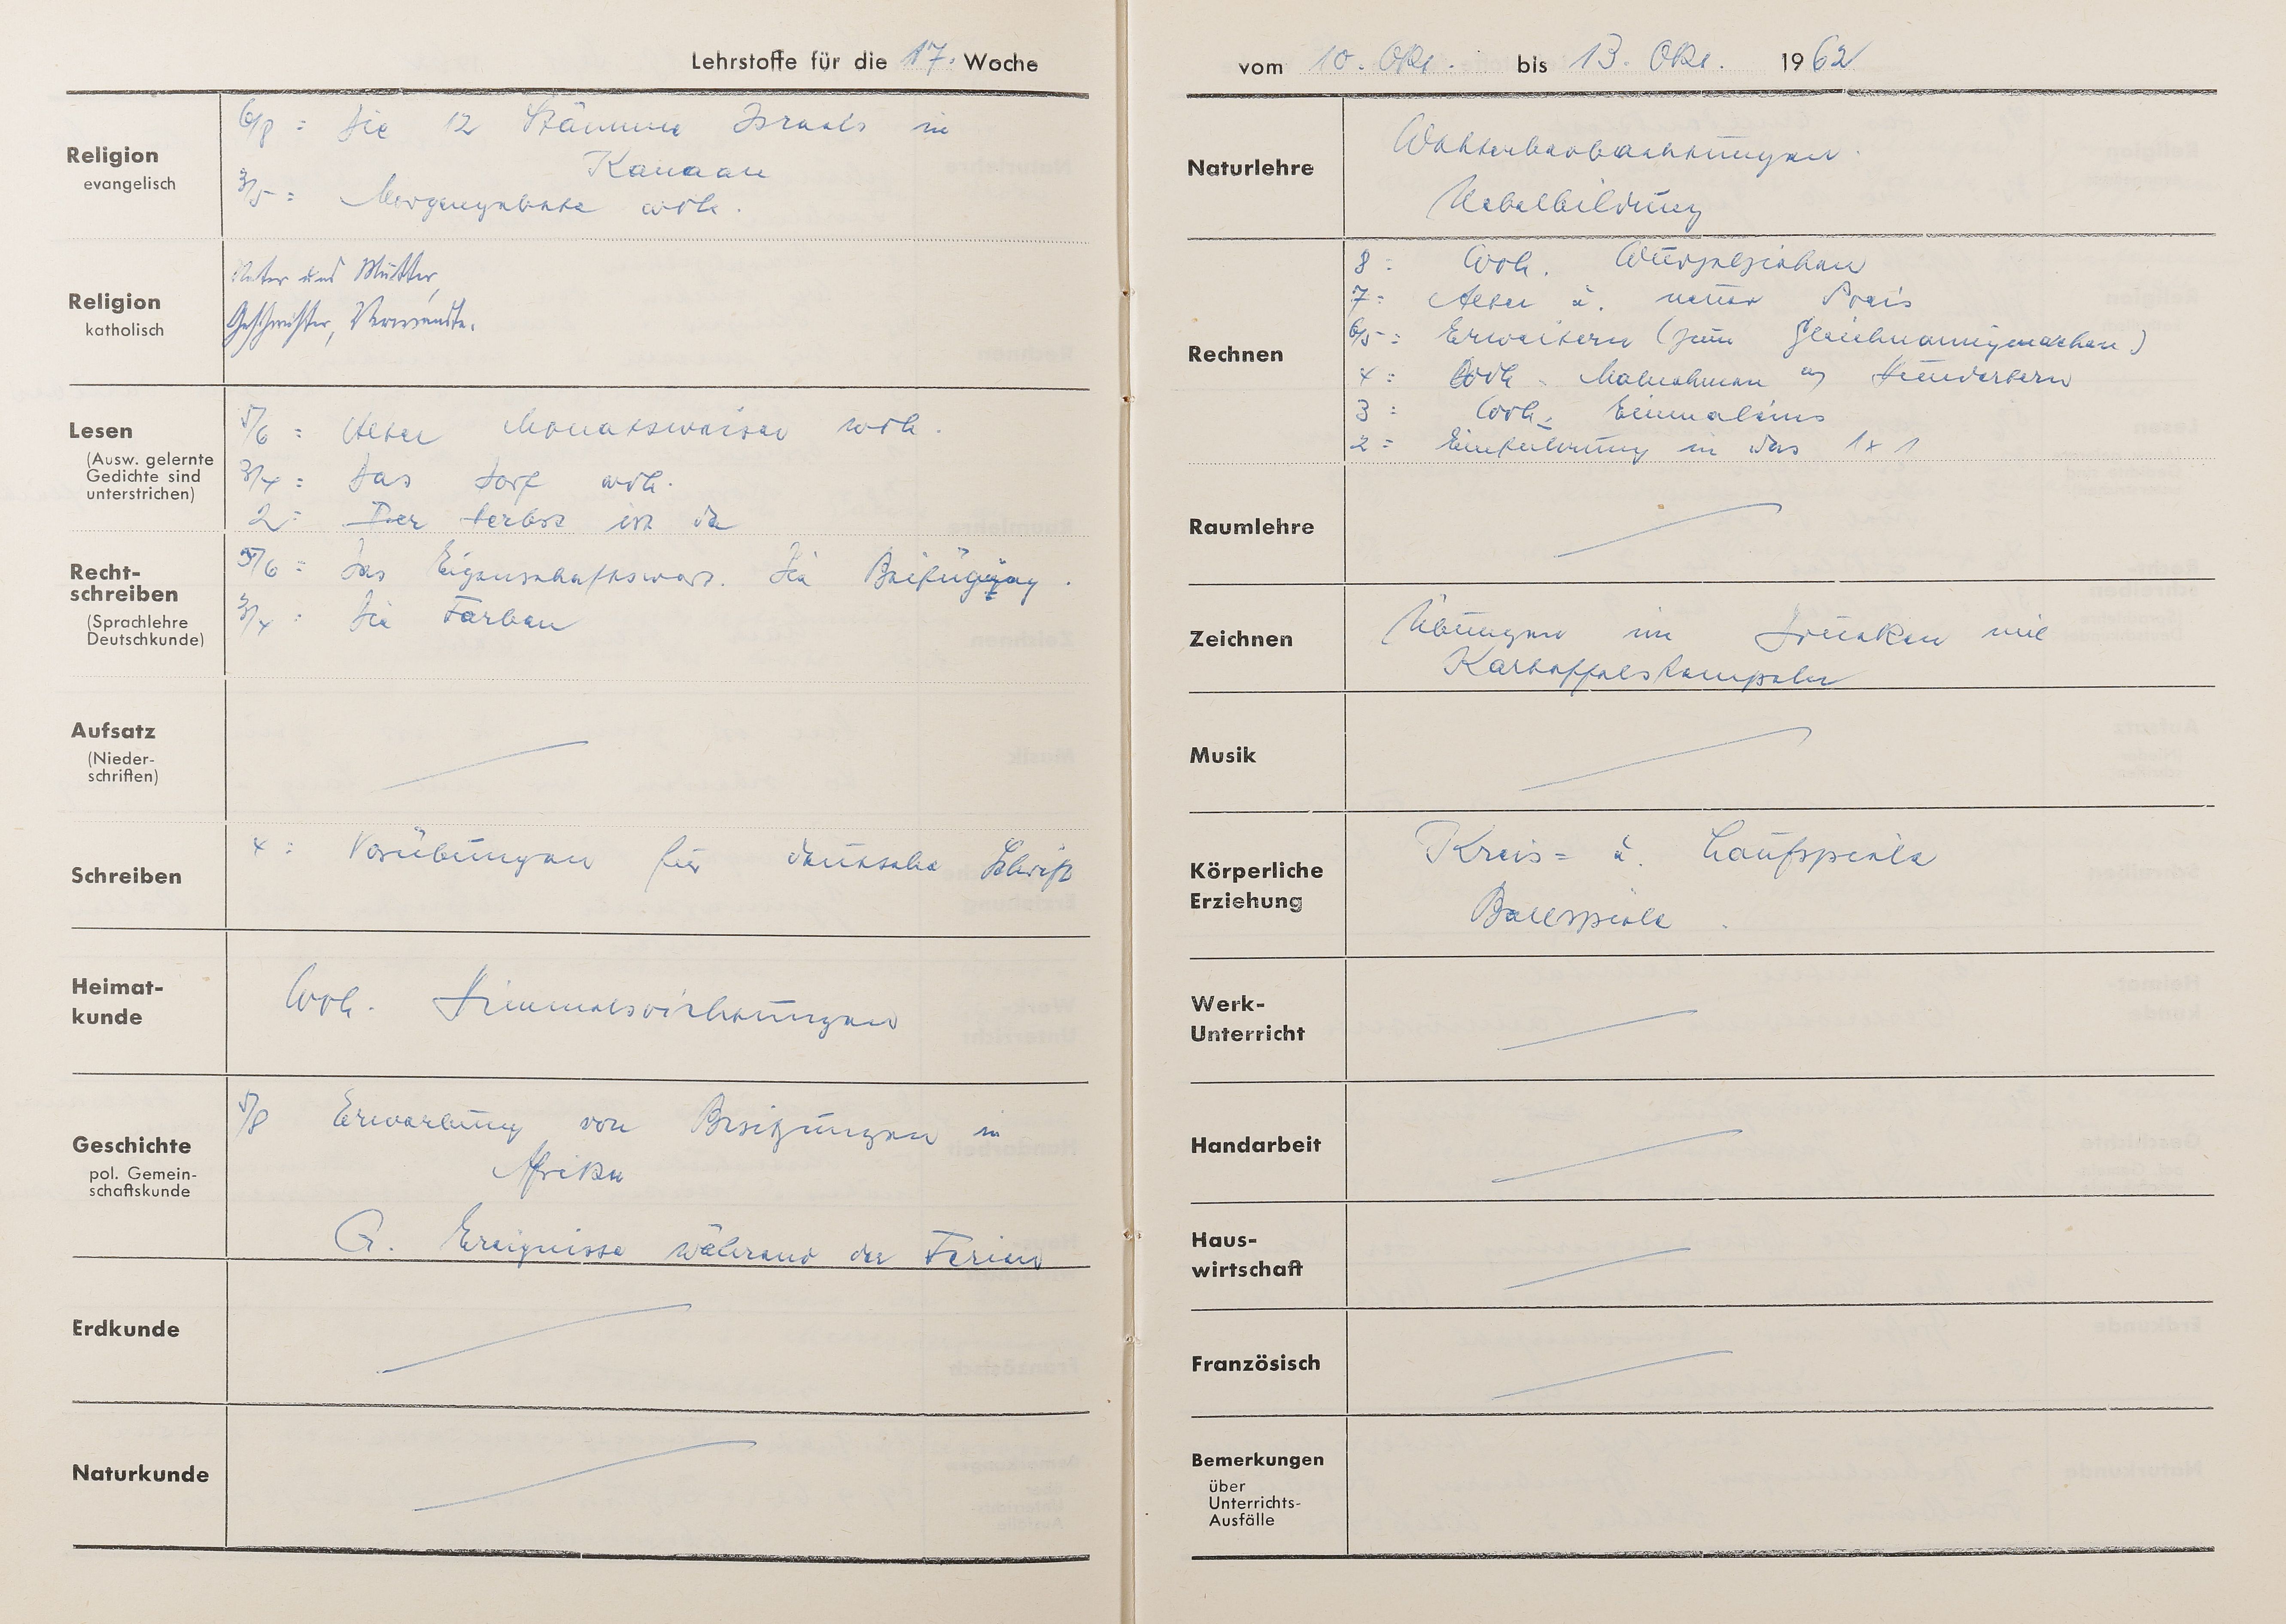 Lehrstoffe für die 17. Woche
Religion
evangelisch
6/8 = Die 12 Stämme Israels in
Kanaan
3/5 = Morgengebete wdh.
Religion
katholisch
Vater und Mutter,
Geschwister, Verwandte.
Lesen
(Ausw. gelernte
Gedichte sind
unterstrichen)
5/6 = Alter Monatsweiser wdh.
3/4 = Das Dorf wdh.
2 = Der Herbst ist da
Recht-
schreiben
(Sprachlehre
Deutschkunde)
5/6 = Das Eigenschaftswort. Die Beifügung.
3/4 = Die Farben
Aufsatz
(Nieder-
schriften)
Schreiben
4 = Vorübungen für deutsche Schrift
Heimat-
kunde
Wdh. Himmelsrichtungen
Geschichte
pol. Gemein-
schaftskunde
5/8 Erwerbung von Besitzungen in
Afrika
G. Ereignisse während der Ferien
Erdkunde
Naturkunde
vom 10. Okt. bis 13. Okt. 1962
Naturlehre
Wetterbeobachtungen.
Nebelbildung
Rechnen
8 = Wdh. Wurzelziehen
7 = Alter u. neuer Preis
6/5 = Erweitern (zum Gleichnamigmachen)
4 = Wdh. Malnehmen m Hundertern
3 = Wdh. Einmaleins
2 = Einführung in das 1x1
Raumlehre
Zeichnen
Übungen im Drucken mit
Kartoffelstempeln
Musik
Körperliche
Erziehung
Kreis= u. Laufspiele
Ballspiele
Werk-
Unterricht
Handarbeit
Haus-
wirtschaft
Französisch
Bemerkungen
über
Unterrichts-
Ausfälle